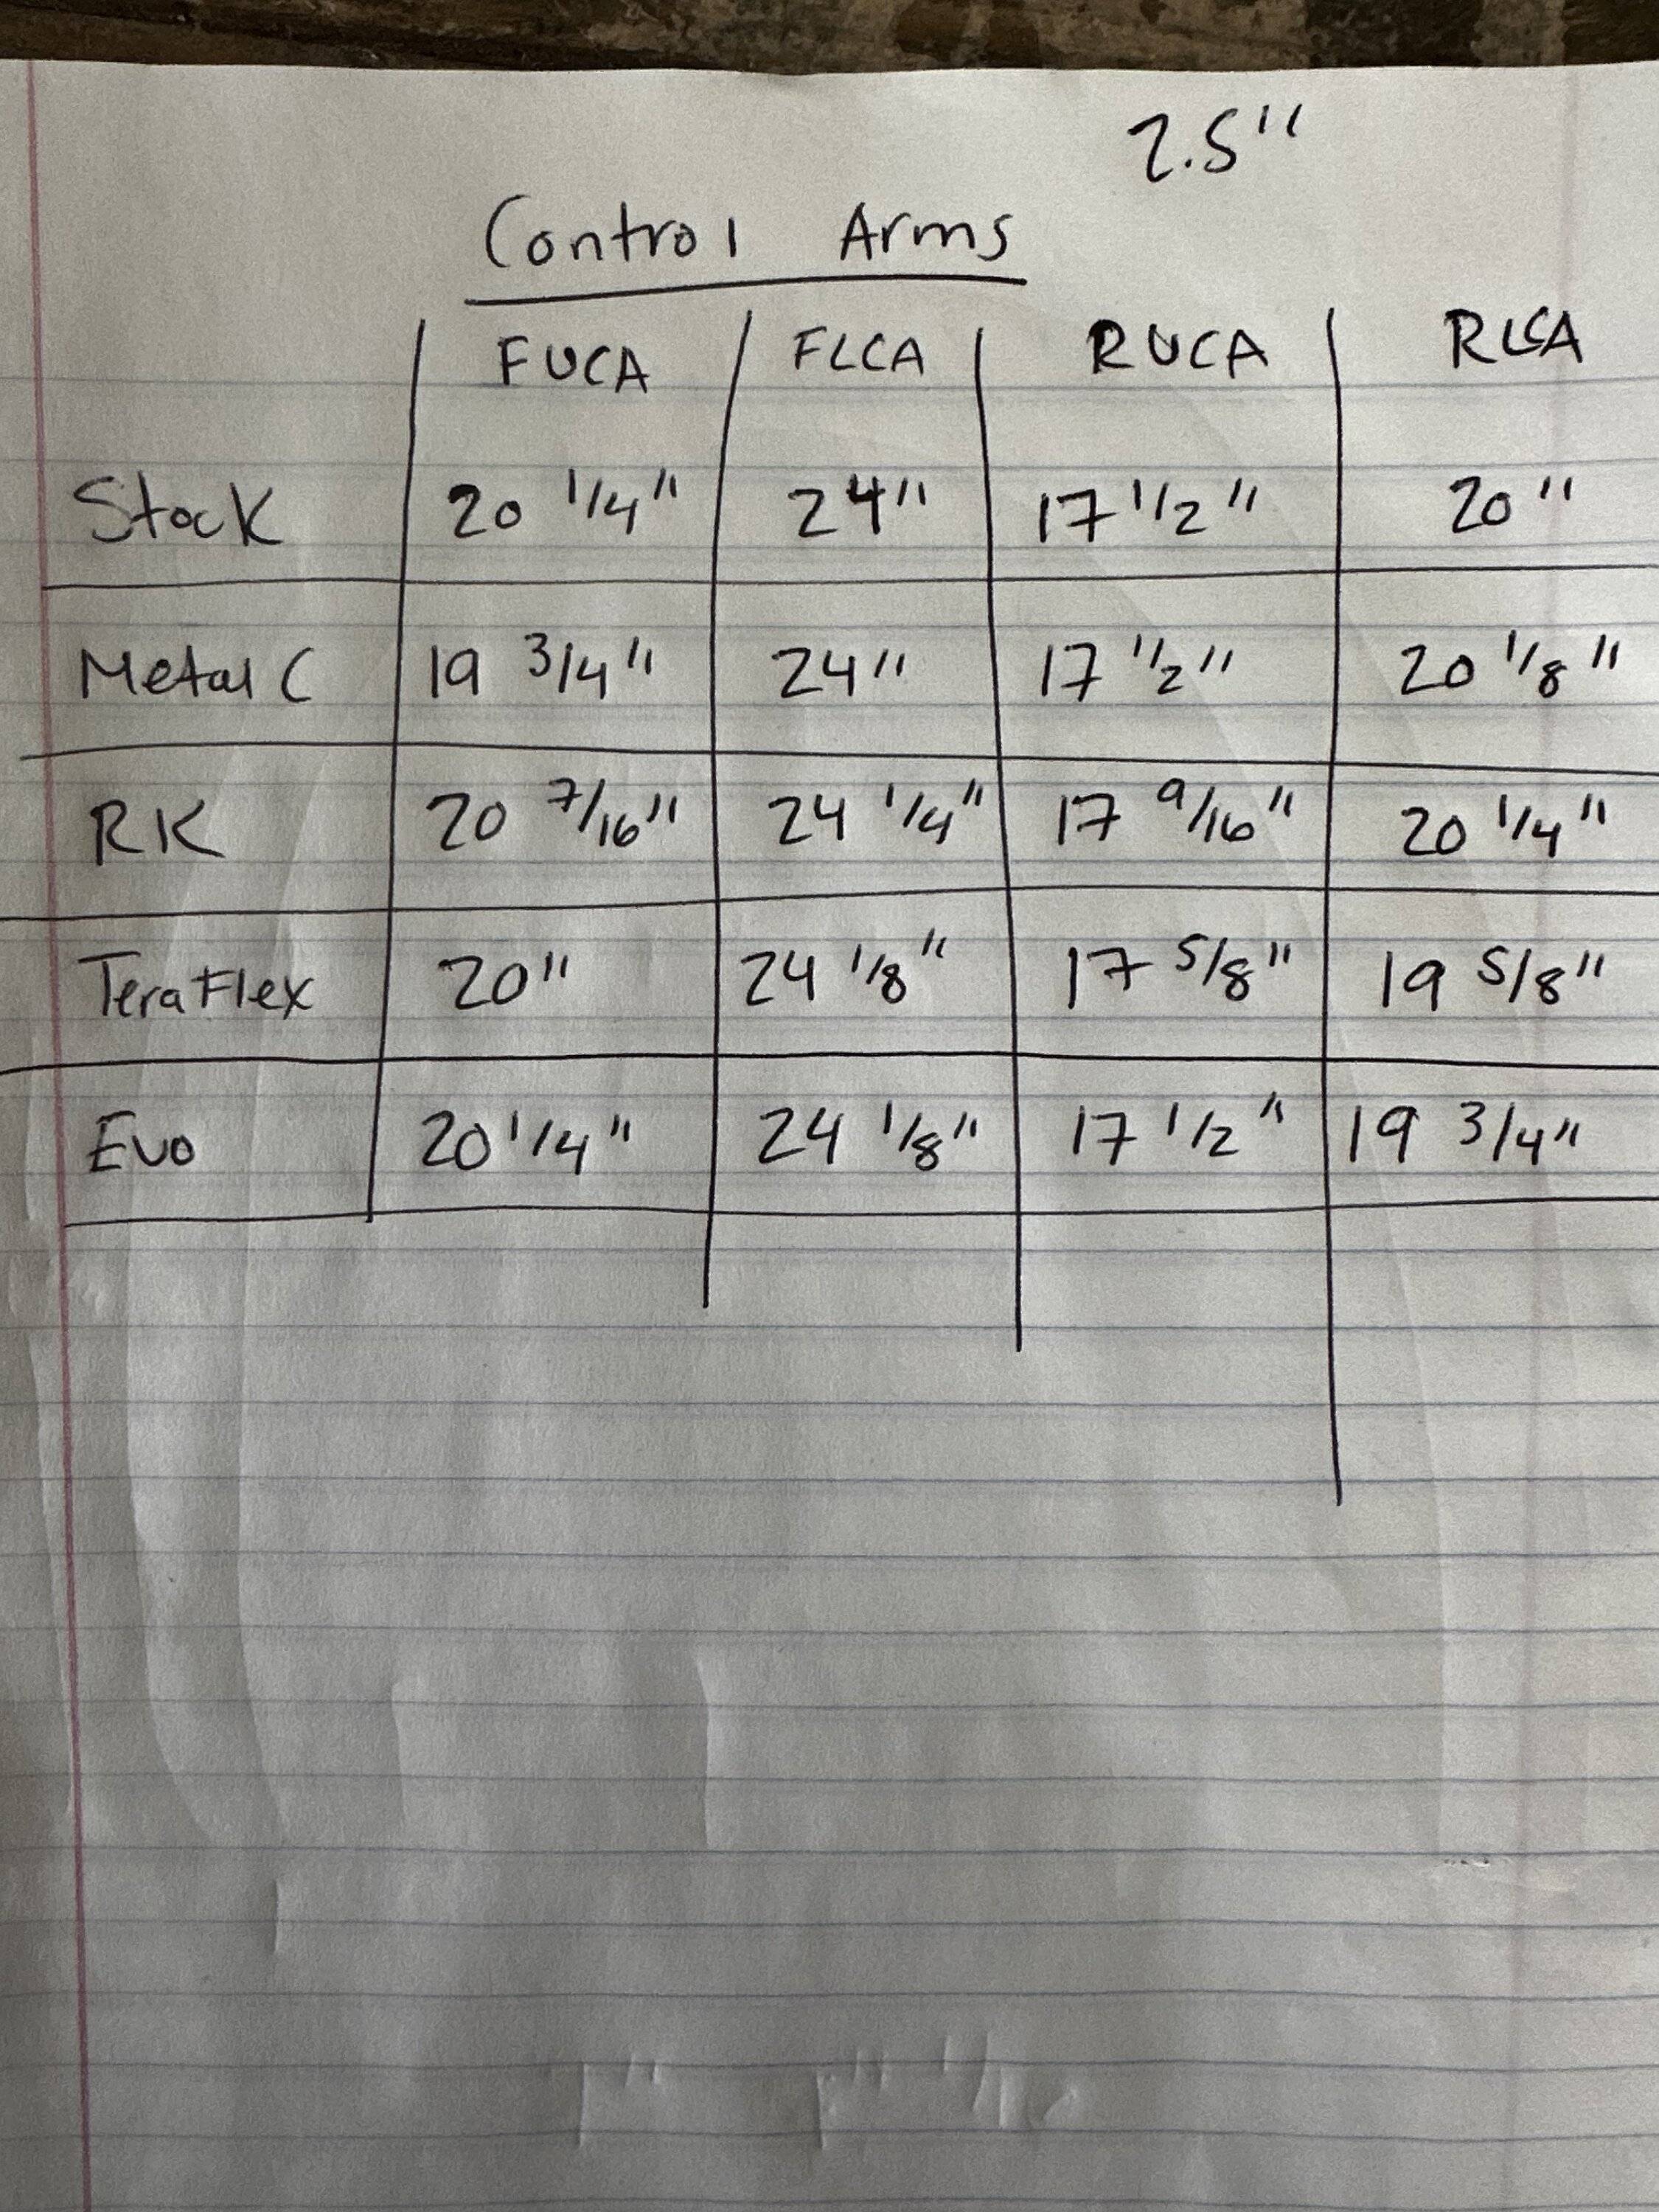 2.5"
Control Arms
FUCA FLCA RUCA RLCA
Stock 20 1/4" 24" 17 1/2" 20"
Metal C 19 3/4" 24" 17 1/2" 20 1/8"
RK 20 7/16" 24 1/4" 17 9/16" 20 1/4"
TeraFlex 20" 24 1/8" 17 5/8" 19 5/8"
Evo 20 1/4" 24 1/8" 17 1/2" 19 3/4"